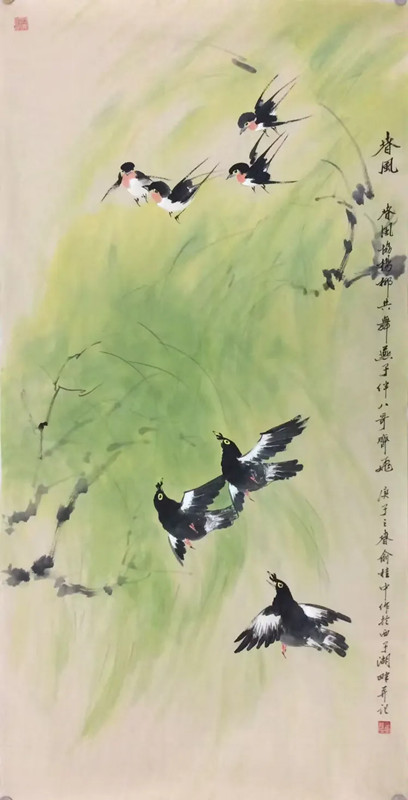 春風
春風扬楊柳共舞燕子伴八哥齊飛
庚子之春俞桂中作於西子湖畔并記